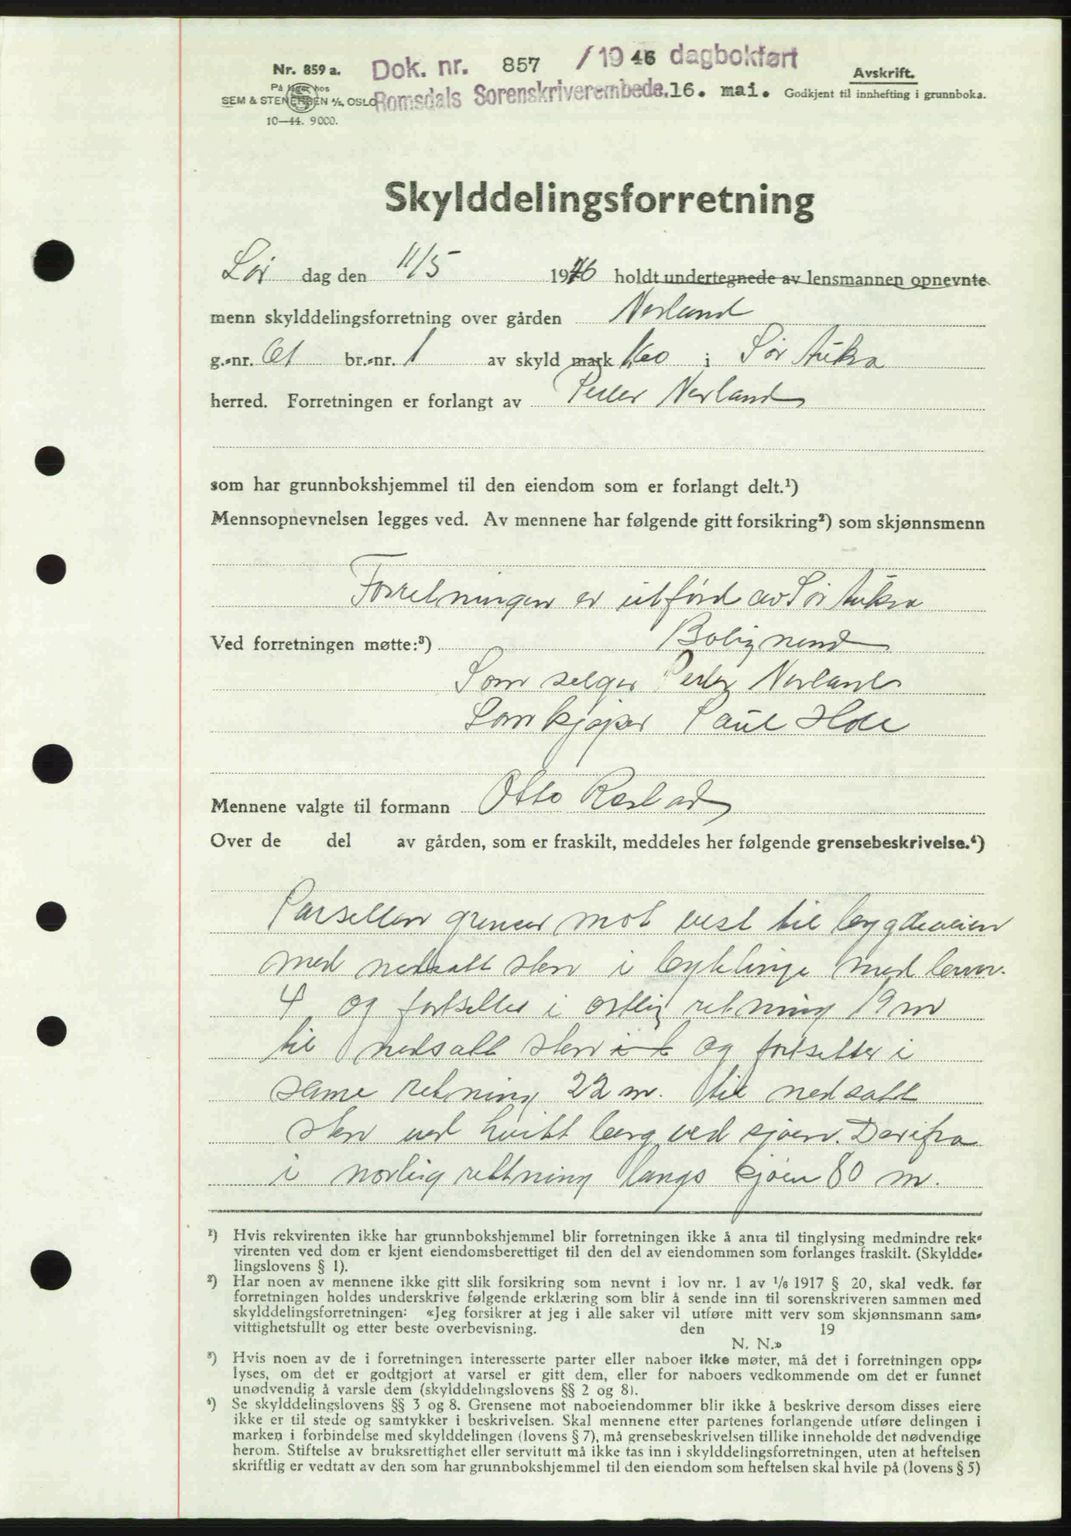 Nr. 859 a.
På lager hos
SEM & STENERSEN A/S, OSLO
10—44. 9000.
Dok. nr. 857 /1946 dagbokført
Romsdals Sorenskriverembede. 16. mai.
Avskrift.
Godkjent til innhefting i grunnboka.
Skylddelingsforretning
Lør dag den 11/5 1946 holdt undertegnede av lensmannen opnevnte
menn skylddelingsforretning over gården Nerland
g.-nr. 61 br.-nr. 1 av skyld mark i Sør Aukra
herred. Forretningen er forlangt av Peder Nerland
som har grunnbokshjemmel til den eiendom som er forlangt delt.¹)
Mennsopnevnelsen legges ved. Av mennene har følgende gitt forsikring²) som skjønnsmenn
Forretningen er utførd av Sør Aukra
Ved forretningen møtte:³) Bolignemd
Som selger Peder Nerland
Som kjøper Paul Hole
Mennene valgte til formann Otto
Over de del av gården, som er fraskilt, meddeles her følgende grensebeskrivelse.⁴)
Parsellen grenser mot vest til bygdeveien
med nedsatt sten i med
4 og fortsetter i østlig retning 19 m
til nedsatt sten i t og fortsetter i
same retning 22 m. til nedsatt
sten ved hvitt berg ved sjøen. Derifra
i norlig rettning langs sjøen 80 m.
¹) Hvis rekvirenten ikke har grunnbokshjemmel blir forretningen ikke å anta til tinglysing medmindre rek-
virenten ved dom er kjent eiendomsberettiget til den del av eiendommen som forlanges fraskilt. (Skyldde-
lingslovens § 1).
²) Har noen av mennene ikke gitt slik forsikring som nevnt i lov nr. 1 av 1/6 1917 § 20, skal vedk. før
forretningen holdes underskrive følgende erklæring som blir å sende inn til sorenskriveren sammen med
skylddelingsforretningen: «Jeg forsikrer at jeg i alle saker vil utføre mitt verv som skjønnsmann sam-
vittighetsfullt og etter beste overbevisning. den 19
N. N.»
³) Hvis noen av de i forretningen interesserte parter eller naboer ikke møter, må det i forretningen opp-
lyses, om det er godtgjort at varsel er gitt dem, eller for naboers vedkommende om det er funnet
unødvendig å varsle dem (skylddelingslovens §§ 2 og 8).
⁴) Se skylddelingslovens §§ 3 og 8. Grensene mot naboeiendommer blir ikke å beskrive dersom disses eiere
ikke er til stede og samtykker i beskrivelsen. Skal mennene etter partenes forlangende utføre delingen i
marken i forbindelse med skylddelingen (lovens § 7), må grensebeskrivelsen tillike inneholde det nødvendige
herom. Stiftelse av bruksrettighet eller servitutt må ikke tas inn i skylddelingsforretningen, uten at heftelsen
skriftlig er vedtatt av den som har grunnbokshjemmel til den eiendom som heftelsen skal hvile på (lovens § 5)